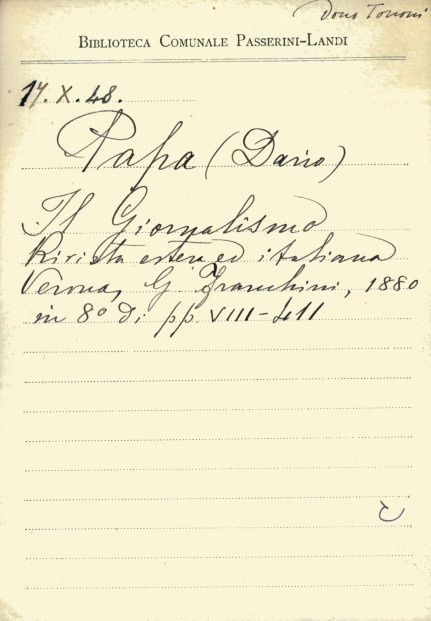 Dono Tononi
BIBLIOTECA COMUNALE PASSERINI-LANDI
17.X.48.
Papa (Dario)
Il Giornalismo
Rivista estera ed italiana
Verona, G Franchini, 1880
in 8° di pp VIII-411